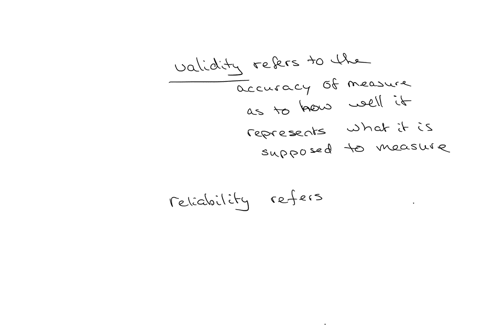 validity refers to the
accuracy of measure
as to how well it
represents what it is
supposed to measure
reliability refers